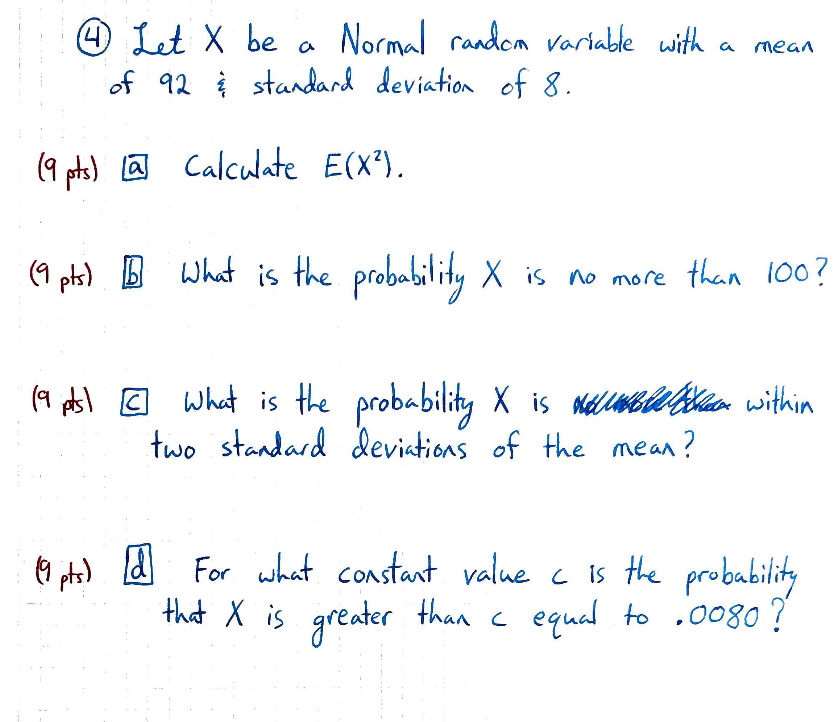 ④ Let X be a Normal random variable with a mean
of 92 & standard deviation of 8.
(9 pts) [a] Calculate E(X²).
(9 pts) [b] What is the probability X is no more than 100?
(9 pts) [c] What is the probability X is within
two standard deviations of the mean?
(9 pts) [d] For what constant value c is the probability
that X is greater than c equal to .0080?